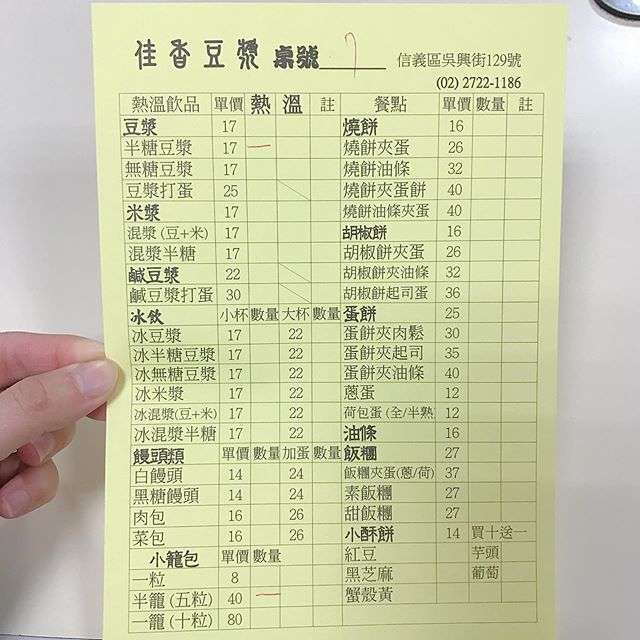 佳香豆漿 桌號 7 信義區吳興街129號
(02) 2722-1186
熱溫飲品 單價 熱 溫 註 餐點 單價 數量 註
豆漿 17 燒餅 16
半糖豆漿 17 一 燒餅夾蛋 26
無糖豆漿 17 燒餅油條 32
豆漿打蛋 25 燒餅夾蛋餅 40
米漿 17 燒餅油條夾蛋 40
混漿(豆+米) 17 胡椒餅 16
混漿半糖 17 胡椒餅夾蛋 26
鹹豆漿 22 胡椒餅夾油條 32
鹹豆漿打蛋 30 胡椒餅起司蛋 36
冰飲 小杯 數量 大杯 數量 蛋餅 25
冰豆漿 17 22 蛋餅夾肉鬆 30
冰半糖豆漿 17 22 蛋餅夾起司 35
冰無糖豆漿 17 22 蛋餅夾油條 40
冰米漿 17 22 蔥蛋 12
冰混漿(豆+米) 17 22 荷包蛋(全/半熟) 12
冰混漿半糖 17 22 油條 16
饅頭類 單價 數量 加蛋 數量 飯糰 27
白饅頭 14 24 飯糰夾蛋(蔥/荷) 37
黑糖饅頭 14 24 素飯糰 27
肉包 16 26 甜飯糰 27
菜包 16 26 小酥餅 14 買十送一
小籠包 單價 數量 紅豆 芋頭
一粒 8 黑芝麻 葡萄
半籠(五粒) 40 一 蟹殼黃
一籠(十粒) 80